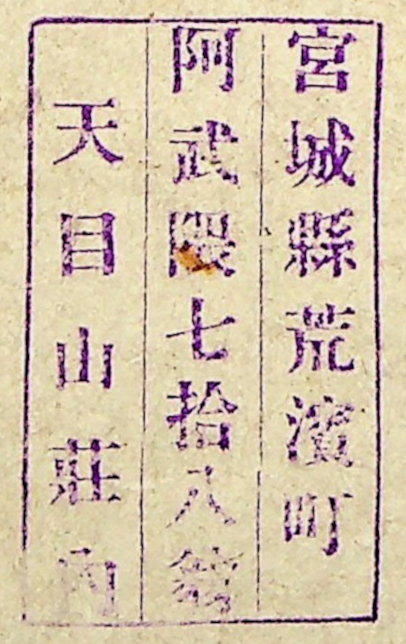 宮城縣荒濱町
阿武隈七拾八號
天目山莊内